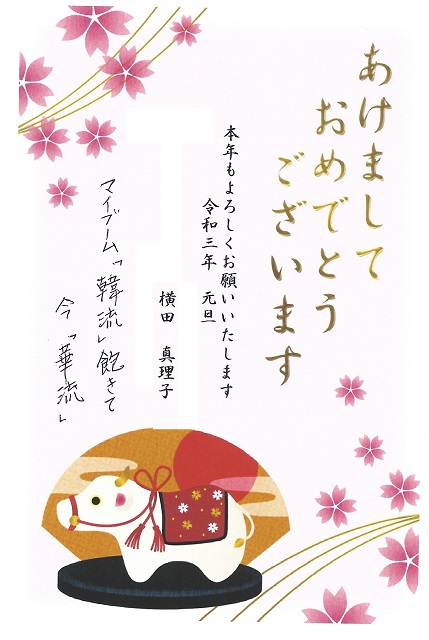 あけまして
おめでとう
ございます
本年もよろしくお願いいたします
令和三年 元旦
横田 真理子
マイブーム「韓流」飽きて
今「華流」